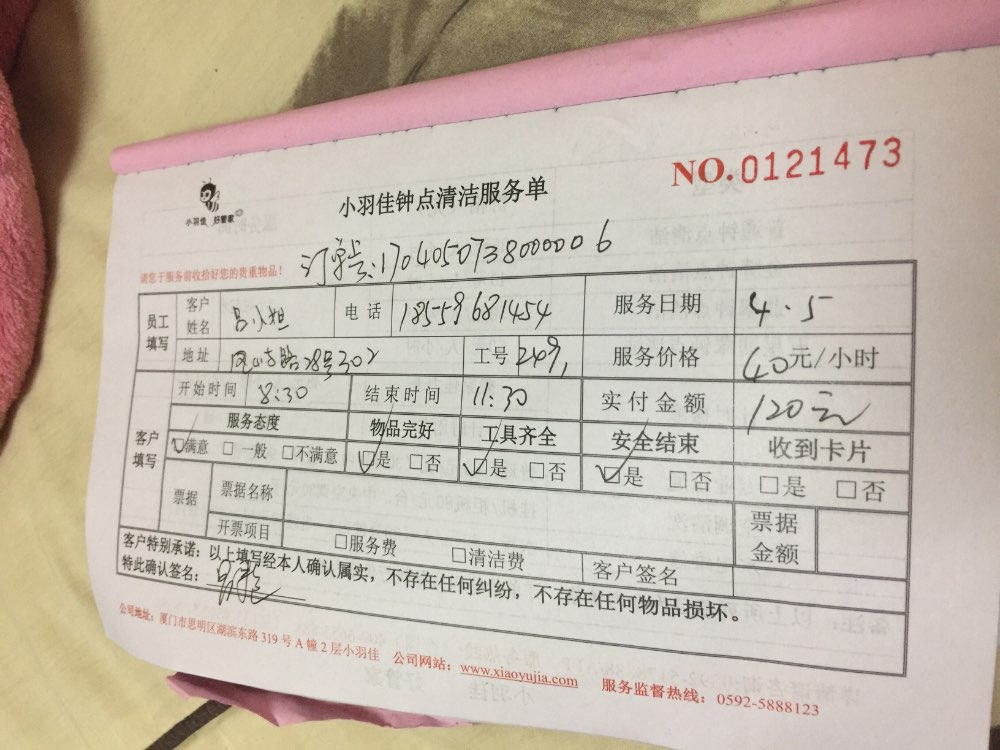 NO.0121473
小羽佳 好管家
小羽佳钟点清洁服务单
请您于服务前收拾好您的贵重物品！
订单号:17040507380000006
员工填写 客户姓名 吕小姐 电话 18559681454 服务日期 4.5
地址 28号302 工号 2491 服务价格 40元/小时
客户填写 开始时间 8:30 结束时间 11:30 实付金额 120元
服务态度 物品完好 工具齐全 安全结束 收到卡片
☑满意 □一般 □不满意 ☑是 □否 ☑是 □否 ☑是 □否 □是 □否
票据 票据名称 票据金额
开票项目 □服务费 □清洁费 客户签名
客户特别承诺：以上填写经本人确认属实，不存在任何纠纷，不存在任何物品损坏。
特此确认签名：
公司地址：厦门市思明区湖滨东路319号A幢2层小羽佳 公司网站：www.xiaoyujia.com 服务监督热线：0592-5888123